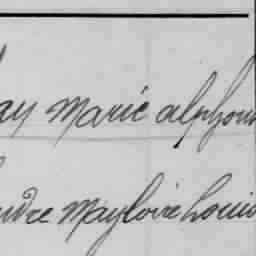 ay Marie alphons
udre Mayloire Louis